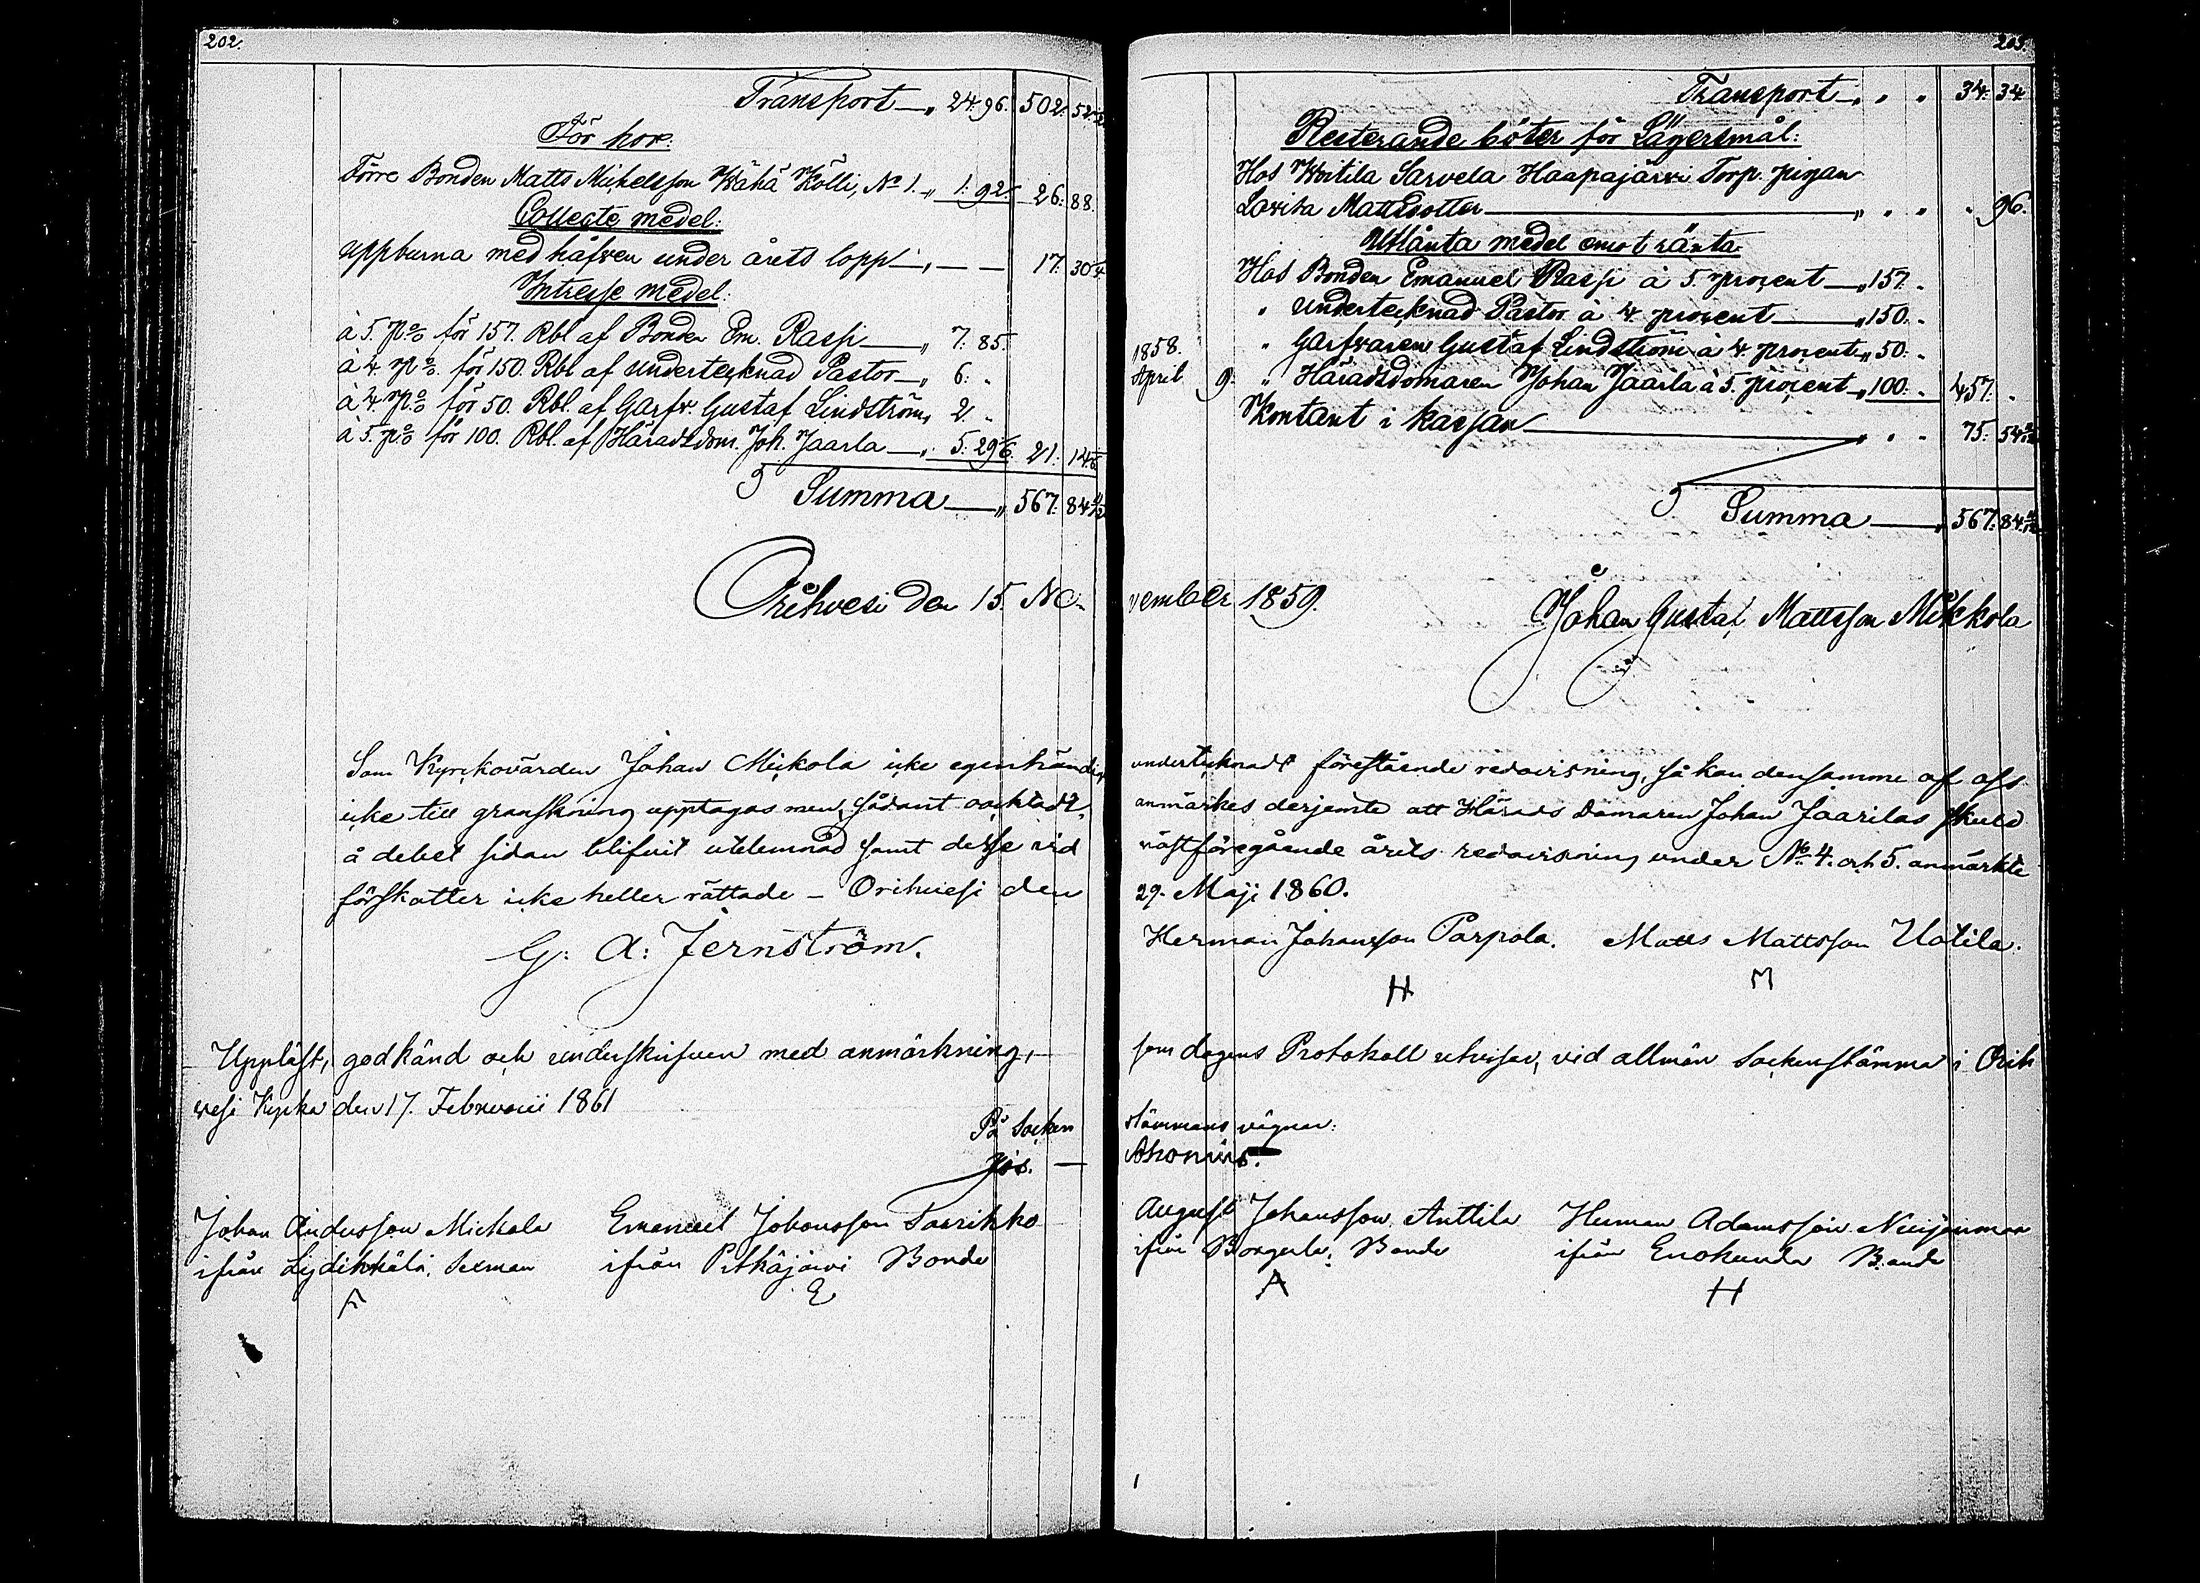 202.
Transport „ 24. 96. 502. 52
För hor:
Förre Bonden Matts Mickelsson Wähä Kölli, No 1. „ 1. 92. 26. 88.
Collecte medel:
uppburna med håfven under årets lopp „ — — 17. 30
Intresse medel:
à 5. p% för 157. Rbl af Bonden Em. Rassi „ 7. 85.
à 4. p%. för 150. Rbl af undertecknad Pastor „ 6. „
à 4. p% för 50. Rbl. af Garfv. Gustaf Lindström „ 2. „
à 5. p% för 100. Rbl. af Häradsdom. Joh. Jaarla „ 5. 29 21. 14
Summa „ 567. 84
Orihvesi den 15. No-
Som Kyrckovärden Johan Mickola icke egenhändigt
icke till granskning upptagas men, sådant oacktadt,
å debet sidan blifvit utelemnad samt desse vid
förskatter icke heller rättade – Orihvesi den
G: A: Jernström.
Uppläst, godkänd och underskrifven med anmärkning,
vesi Kyrka den 17. Februarii 1861
På Socken
Jos. —
Johan Andersson Mickola Emanuel Johansson Saarikko
ifrån Lyöikkälä, Sexman ifrån Pitkäjärvi Bonde
E
203.
Transport „ „ „ 34. 34
Resterande böter för Lägersmål:
Hos Woitila Sarvela Haapajärvi Torp. pigan
Lovisa Mattsdotter „ „ „ „ 96.
Utlånta medel emot ränta
Hos Bonden Emanuel Rassi à 5. procent „ 157. „
„ undertecknad Pastor à 4 procent „ 150. „
1858. „ Garfvaren Gustaf Lindström à 4 procent „ 50. „
April 9. „ Häradsdomaren Johan Jaarla à 5. procent „ 100. „ 457. „
Kontant i kassan „ „ „ 75. 54
Summa „ 567. 84
vember 1859.
Johan Gustaf Mattsson Mikkola
undertecknadt förestående redovisning, så kan densamme af oss
anmärkes derjemte att Härads Domaren Johan Jaarilas skuld
nästföregående årets redovisning under No 4. och 5. anmärkte
29. Maji 1860.
Herman Johansson Parpola. Matts Mattsson Uotila.
H M
som dagens Protokoll utvisar, vid allmän Sockenstämma i Orih
stämmans vägnar:
Ahonius.
August Johansson Anttila Herman Adamsson
ifrån Bonde ifrån Enokunda Bonde
A H